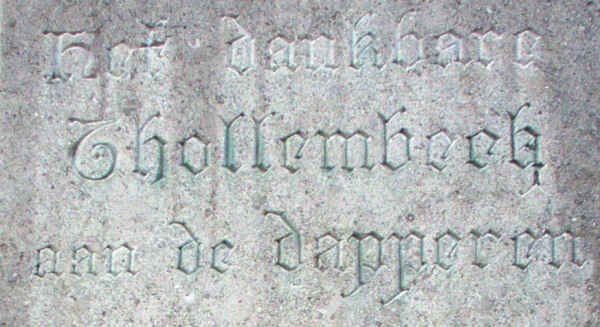 Het dankbare
Thollembeek
aan de dapperen